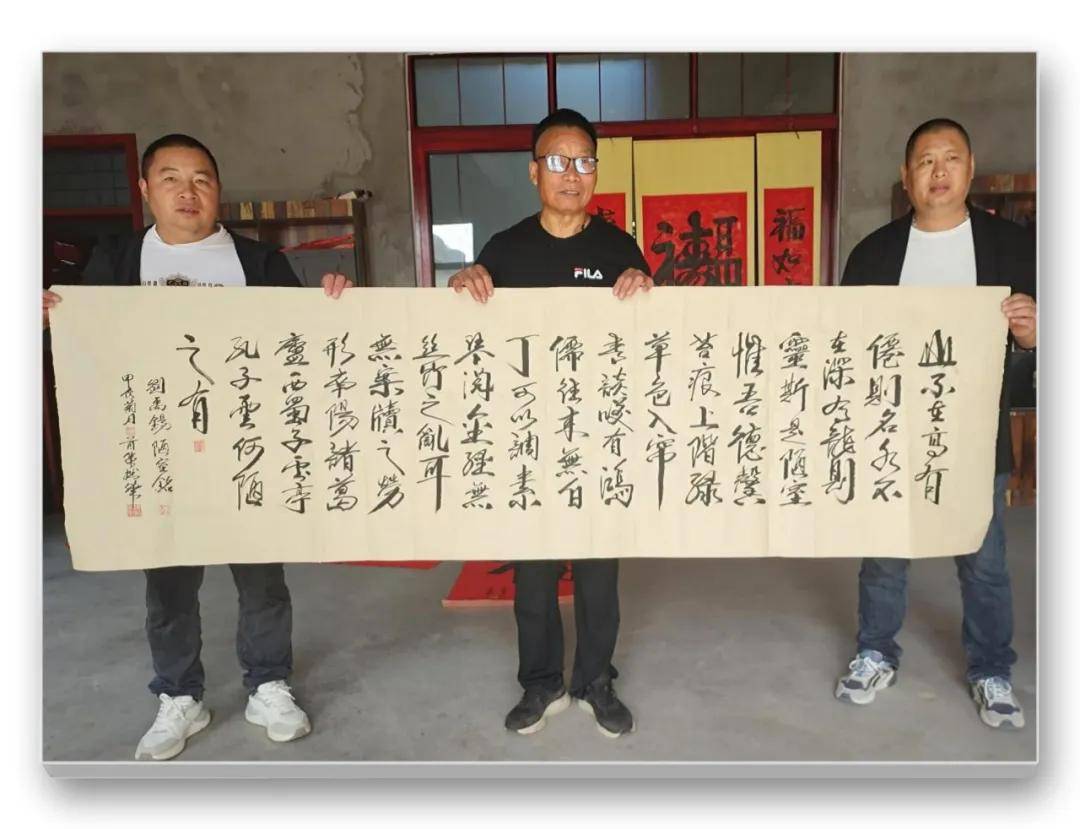 山不在高有
僊則名水不
在深有龍則
靈斯是陋室
惟吾德馨
苔痕上階緑
草色入帘
青談咲有鴻
儒往来無白
丁可以調素
琴閲金經無
丝竹之亂耳
無案牘之勞
形南陽諸葛
廬西蜀子雲亭
孔子雲何陋
之有
劉禹錫陋室銘
甲辰菊月
FILA
福如